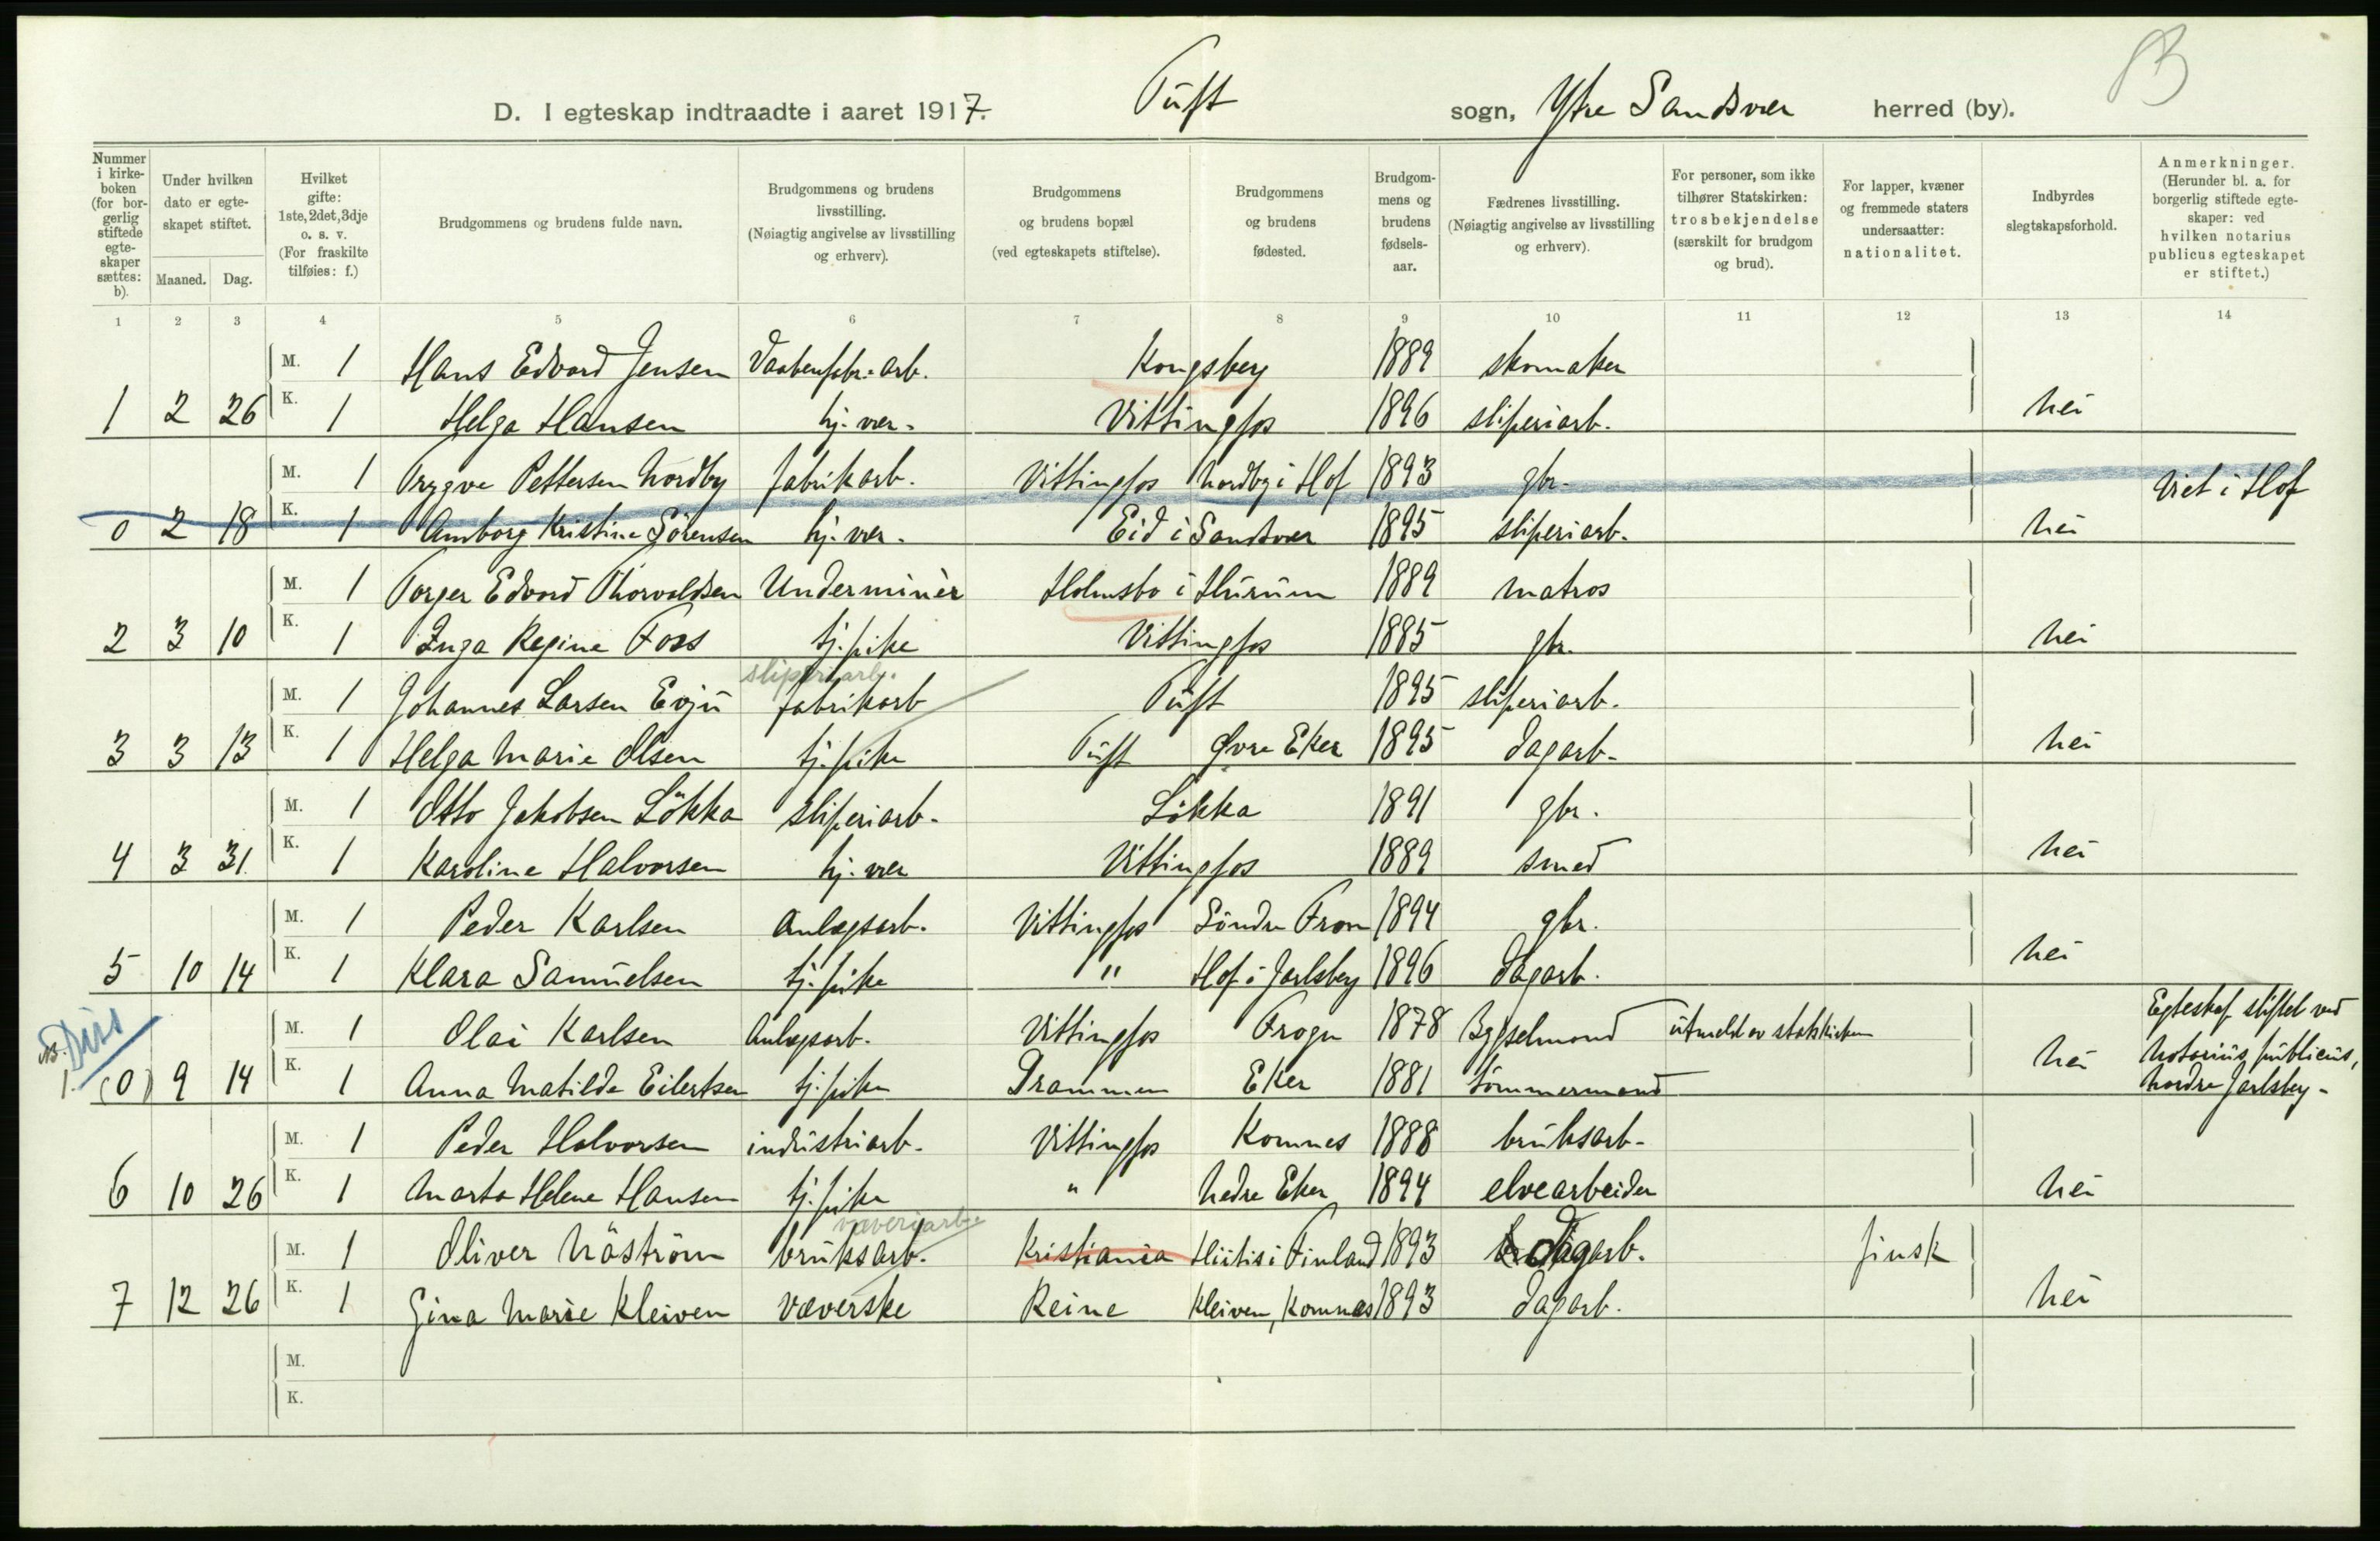 B
D. I egteskap indtraadte i aaret 1917. Tuft sogn, Ytre Sandsver herred (by).
Nummer i kirkeboken (for borgerlig stiftede egteskaper sættes: b).
Under hvilken dato er egteskapet stiftet.
Maaned. Dag.
Hvilket gifte: 1ste, 2det, 3dje o. s. v. (For fraskilte tilføies: f.)
Brudgommens og brudens fulde navn.
Brudgommens og brudens livsstilling. (Nøiagtig angivelse av livsstilling og erhverv).
Brudgommens og brudens bopæl (ved egteskapets stiftelse).
Brudgommens og brudens fødested.
Brudgommens og brudens fødselsaar.
Fædrenes livsstilling. (Nøiagtig angivelse av livsstilling og erhverv).
For personer, som ikke tilhører Statskirken: trosbekjendelse (særskilt for brudgom og brud).
For lapper, kvæner og fremmede staters undersaatter: nationalitet.
Indbyrdes slegtskapsforhold.
Anmerkninger. (Herunder bl. a. for borgerlig stiftede egteskaper: ved hvilken notarius publicus egteskapet er stiftet.)
1 2 3 4 5 6 7 8 9 10 11 12 13 14
M. 1 Hans Edvard Jensen Vaabenfabr. arb. Kongsberg 1889 skomaker
1 2 26 K. 1 Helga Hansen hj. vær. Vittingfos 1896 sliperiarb. nei
M. 1 Trygve Pettersen Nordby fabrikarb. Vittingfos Nordby i Hof 1893 gbr. Viet i Hof
0 2 18 K. 1 Amborg Kristine Sörensen hj. vær. Eid i Sandsver 1895 sliperiarb. nei
M. 1 Torger Edvard Thorvaldsen Underminèr Holmsbo i Hurum 1889 matros
2 3 10 K. 1 Inga Regine Foss tj. pike Vittingfos 1885 gbr. nei
sliperiarb.
M. 1 Johannes Larsen Evju fabrikarb Tuft 1895 sliperiarb.
3 3 13 K. 1 Helga Marie Olsen tj. pike Tuft Øvre Eker 1895 dagarb. nei
M. 1 Otto Jakobsen Lökka sliperiarb. Lökka 1891 gbr.
4 3 31. K. 1 Karoline Halvorsen hj. vær Vittingfos 1889 smed nei
M. 1 Peder Karlsen Anlegsarb. Vittingfos Söndre Fron 1894 gbr.
5 10 14 K. 1 Klara Samuelsen tj. pike " Hof i Jarlsberg 1896 Dagarb. nei
Diss
NB. M. 1 Olai Karlsen Anlegsarb. Vittingfos Frogn 1878 Bygselmand utmeldt av statskirken Egteskap stiftet ved
1. (0) 9 14 K. 1 Anna Matilde Eilertsen tj. pike Drammen Eker 1881 tömmermand nei Notarius publicus, Nordre Jarlsberg.
M. 1 Peder Halvorsen industriarb. Vittingfos Komnes 1888 bruksarb.
6 10 26 K. 1 Marta Helene Hansen tj. pike " Nedre Eker 1894 elvearbeider nei
væveriarb.
M. 1 Oliver Näström bruksarb. Kristiania Hiitis i Finland 1893 dagarb. finsk
7 12 26 K. 1 Gina Marie Kleiven væverske Reine Kleiven, Komnes 1893 dagarb. nei
M.
K.